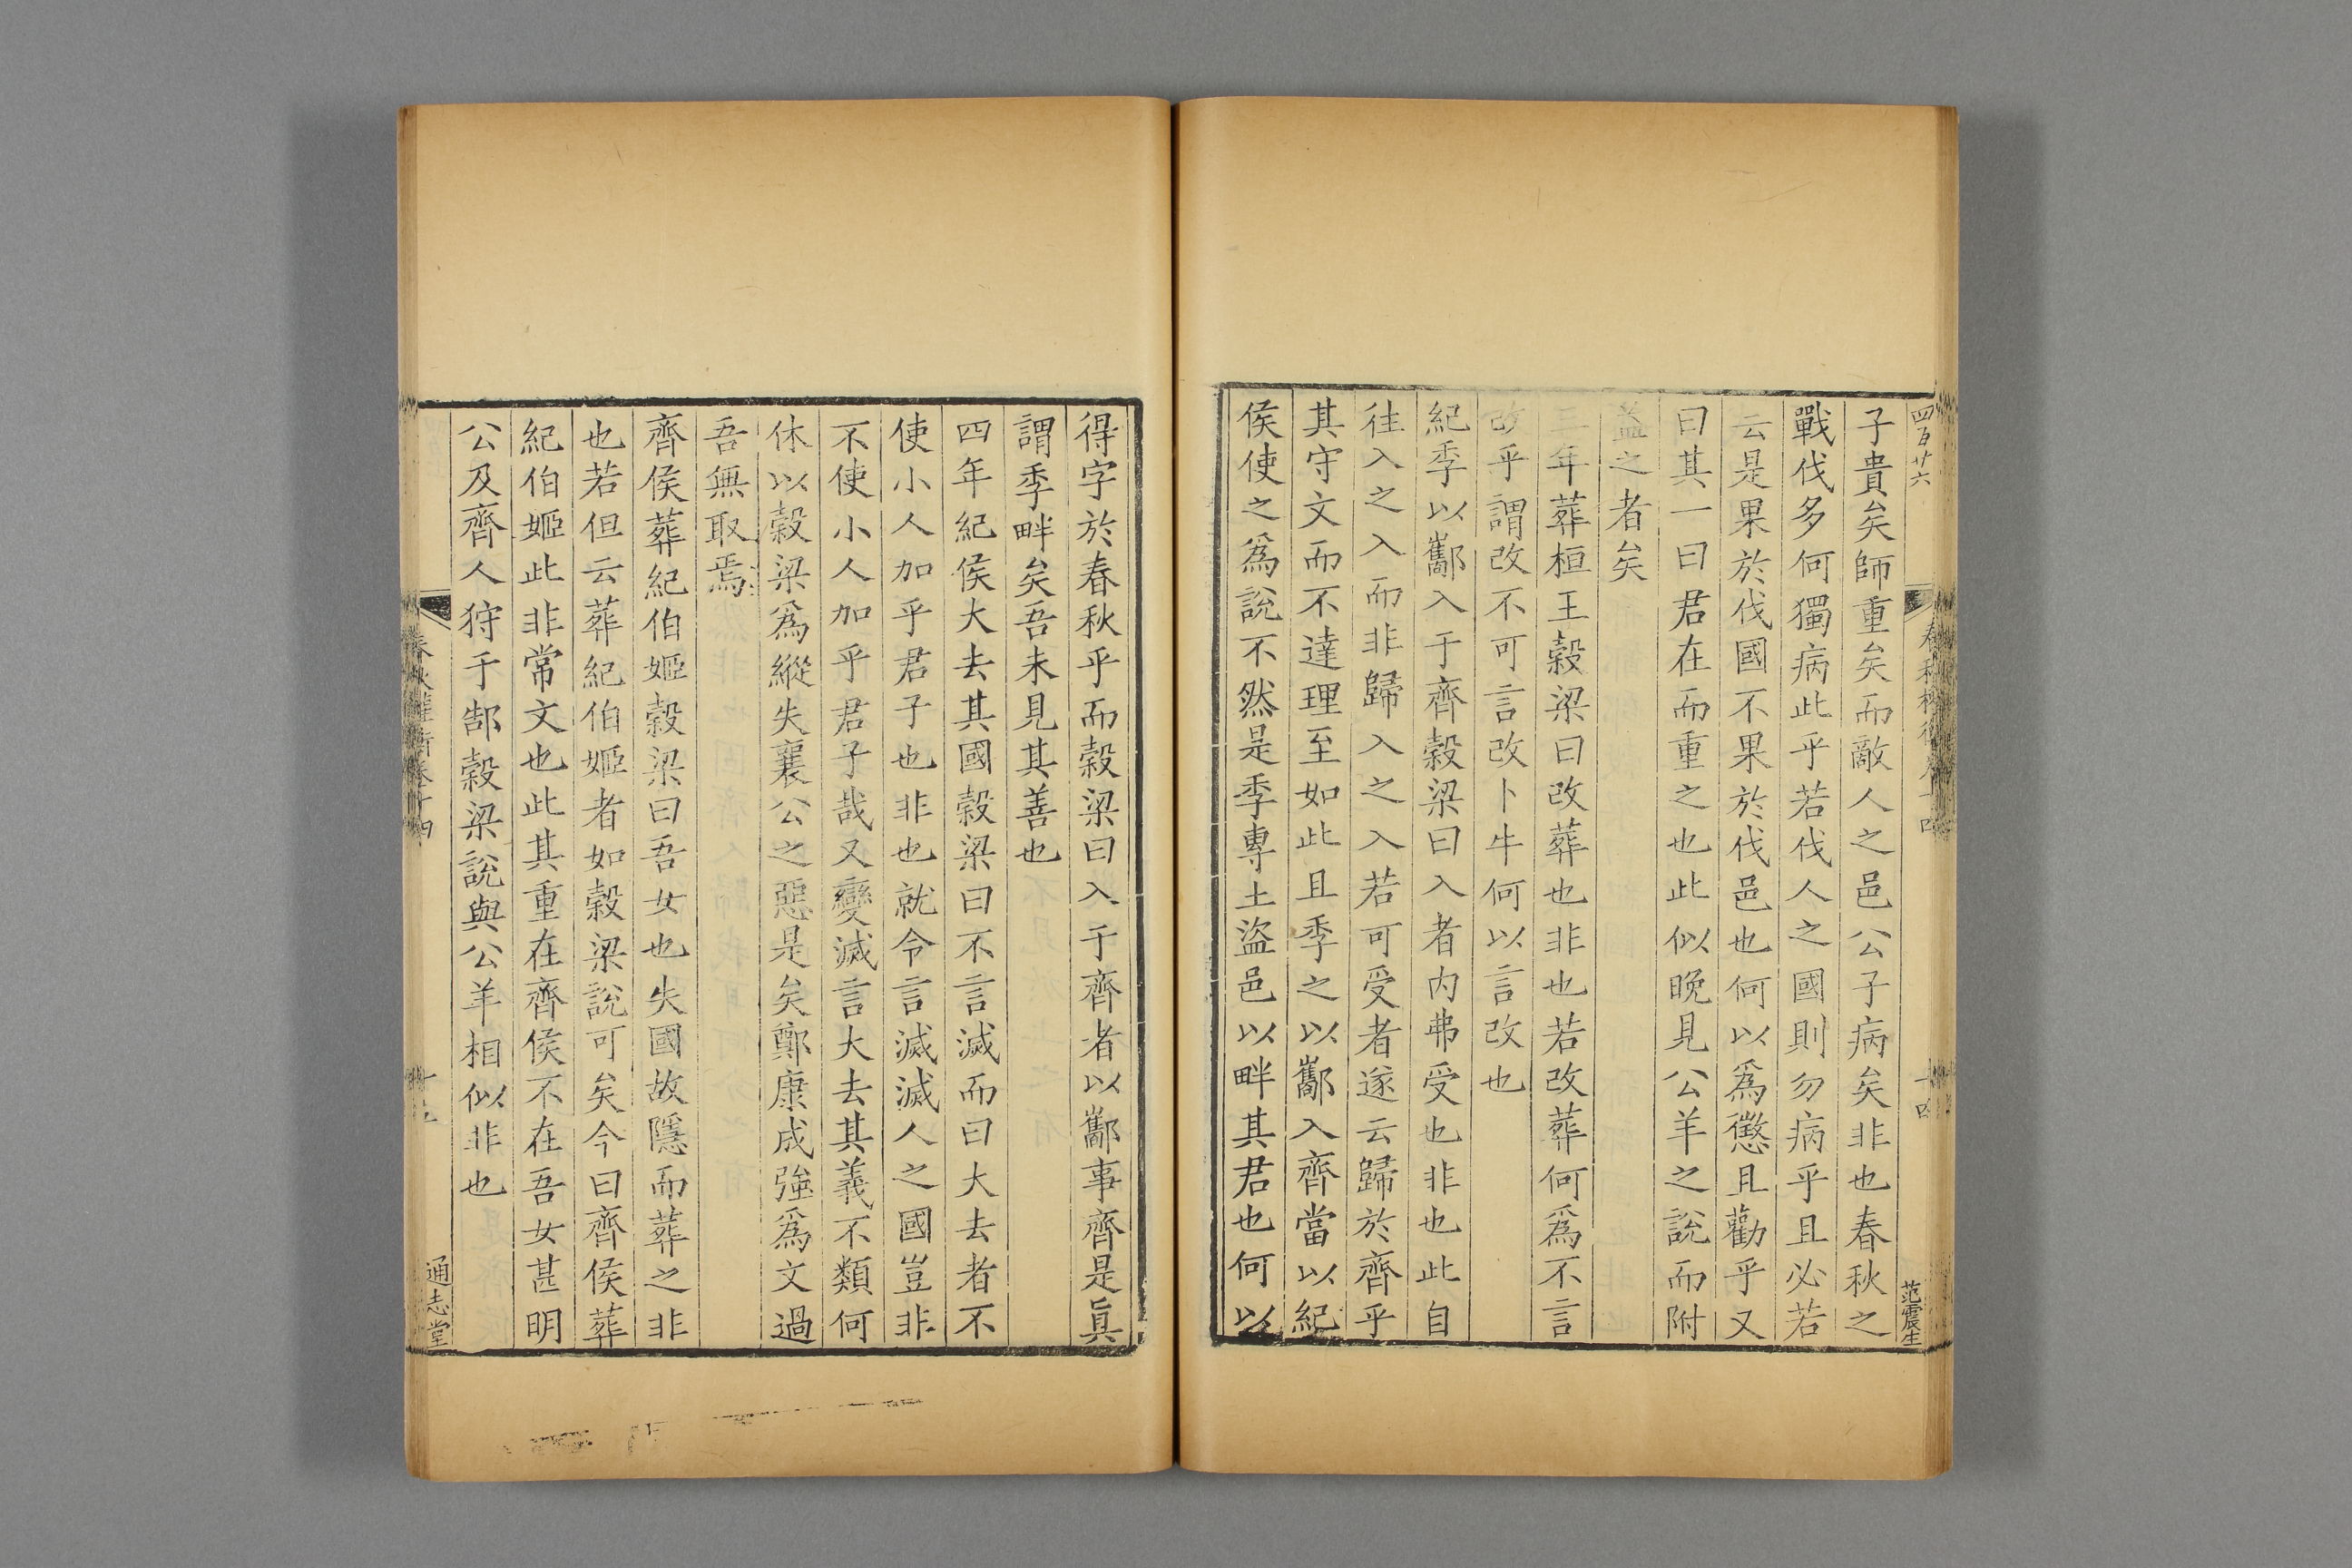 四百廿六
子貴矣師重矣而敵人之邑公子病矣非也春秋之
戰伐多何獨病此乎若伐人之國則勿病乎且必若
云是果於伐國不果於伐邑也何以爲懲且勸乎又
曰其一曰君在而重之也此似晚見公羊之說而附
益之者矣
三年葬桓王穀梁曰改葬也非也若改葬何爲不言
改乎謂改不可言改卜牛何以言改也
紀季以酅入于齊穀梁曰入者内弗受也非也此自
往入之入而非歸入之入若可受者遂云歸於齊乎
其守文而不達理至如此且季之以酅入齊當以紀
侯使之爲說不然是季專土盜邑以畔其君也何以
范震生
得字於春秋乎而穀梁曰入于齊者以酅事齊是眞
謂季畔矣吾未見其善也
四年紀侯大去其國穀梁曰不言滅而曰大去者不
使小人加乎君子也非也就令言滅滅人之國豈非
不使小人加乎君子哉又變滅言大去其義不類何
休以穀梁爲縱失襄公之惡是矣鄭康成強爲文過
吾無取焉
齊侯葬紀伯姬穀梁曰吾女也失國故隱而葬之非
也若但云葬紀伯姬者如穀梁說可矣今曰齊侯葬
紀伯姬此非常文也此其重在齊侯不在吾女甚明
公及齊人狩于郜穀梁說與公羊相似非也
春秋權衡卷十四
通志堂